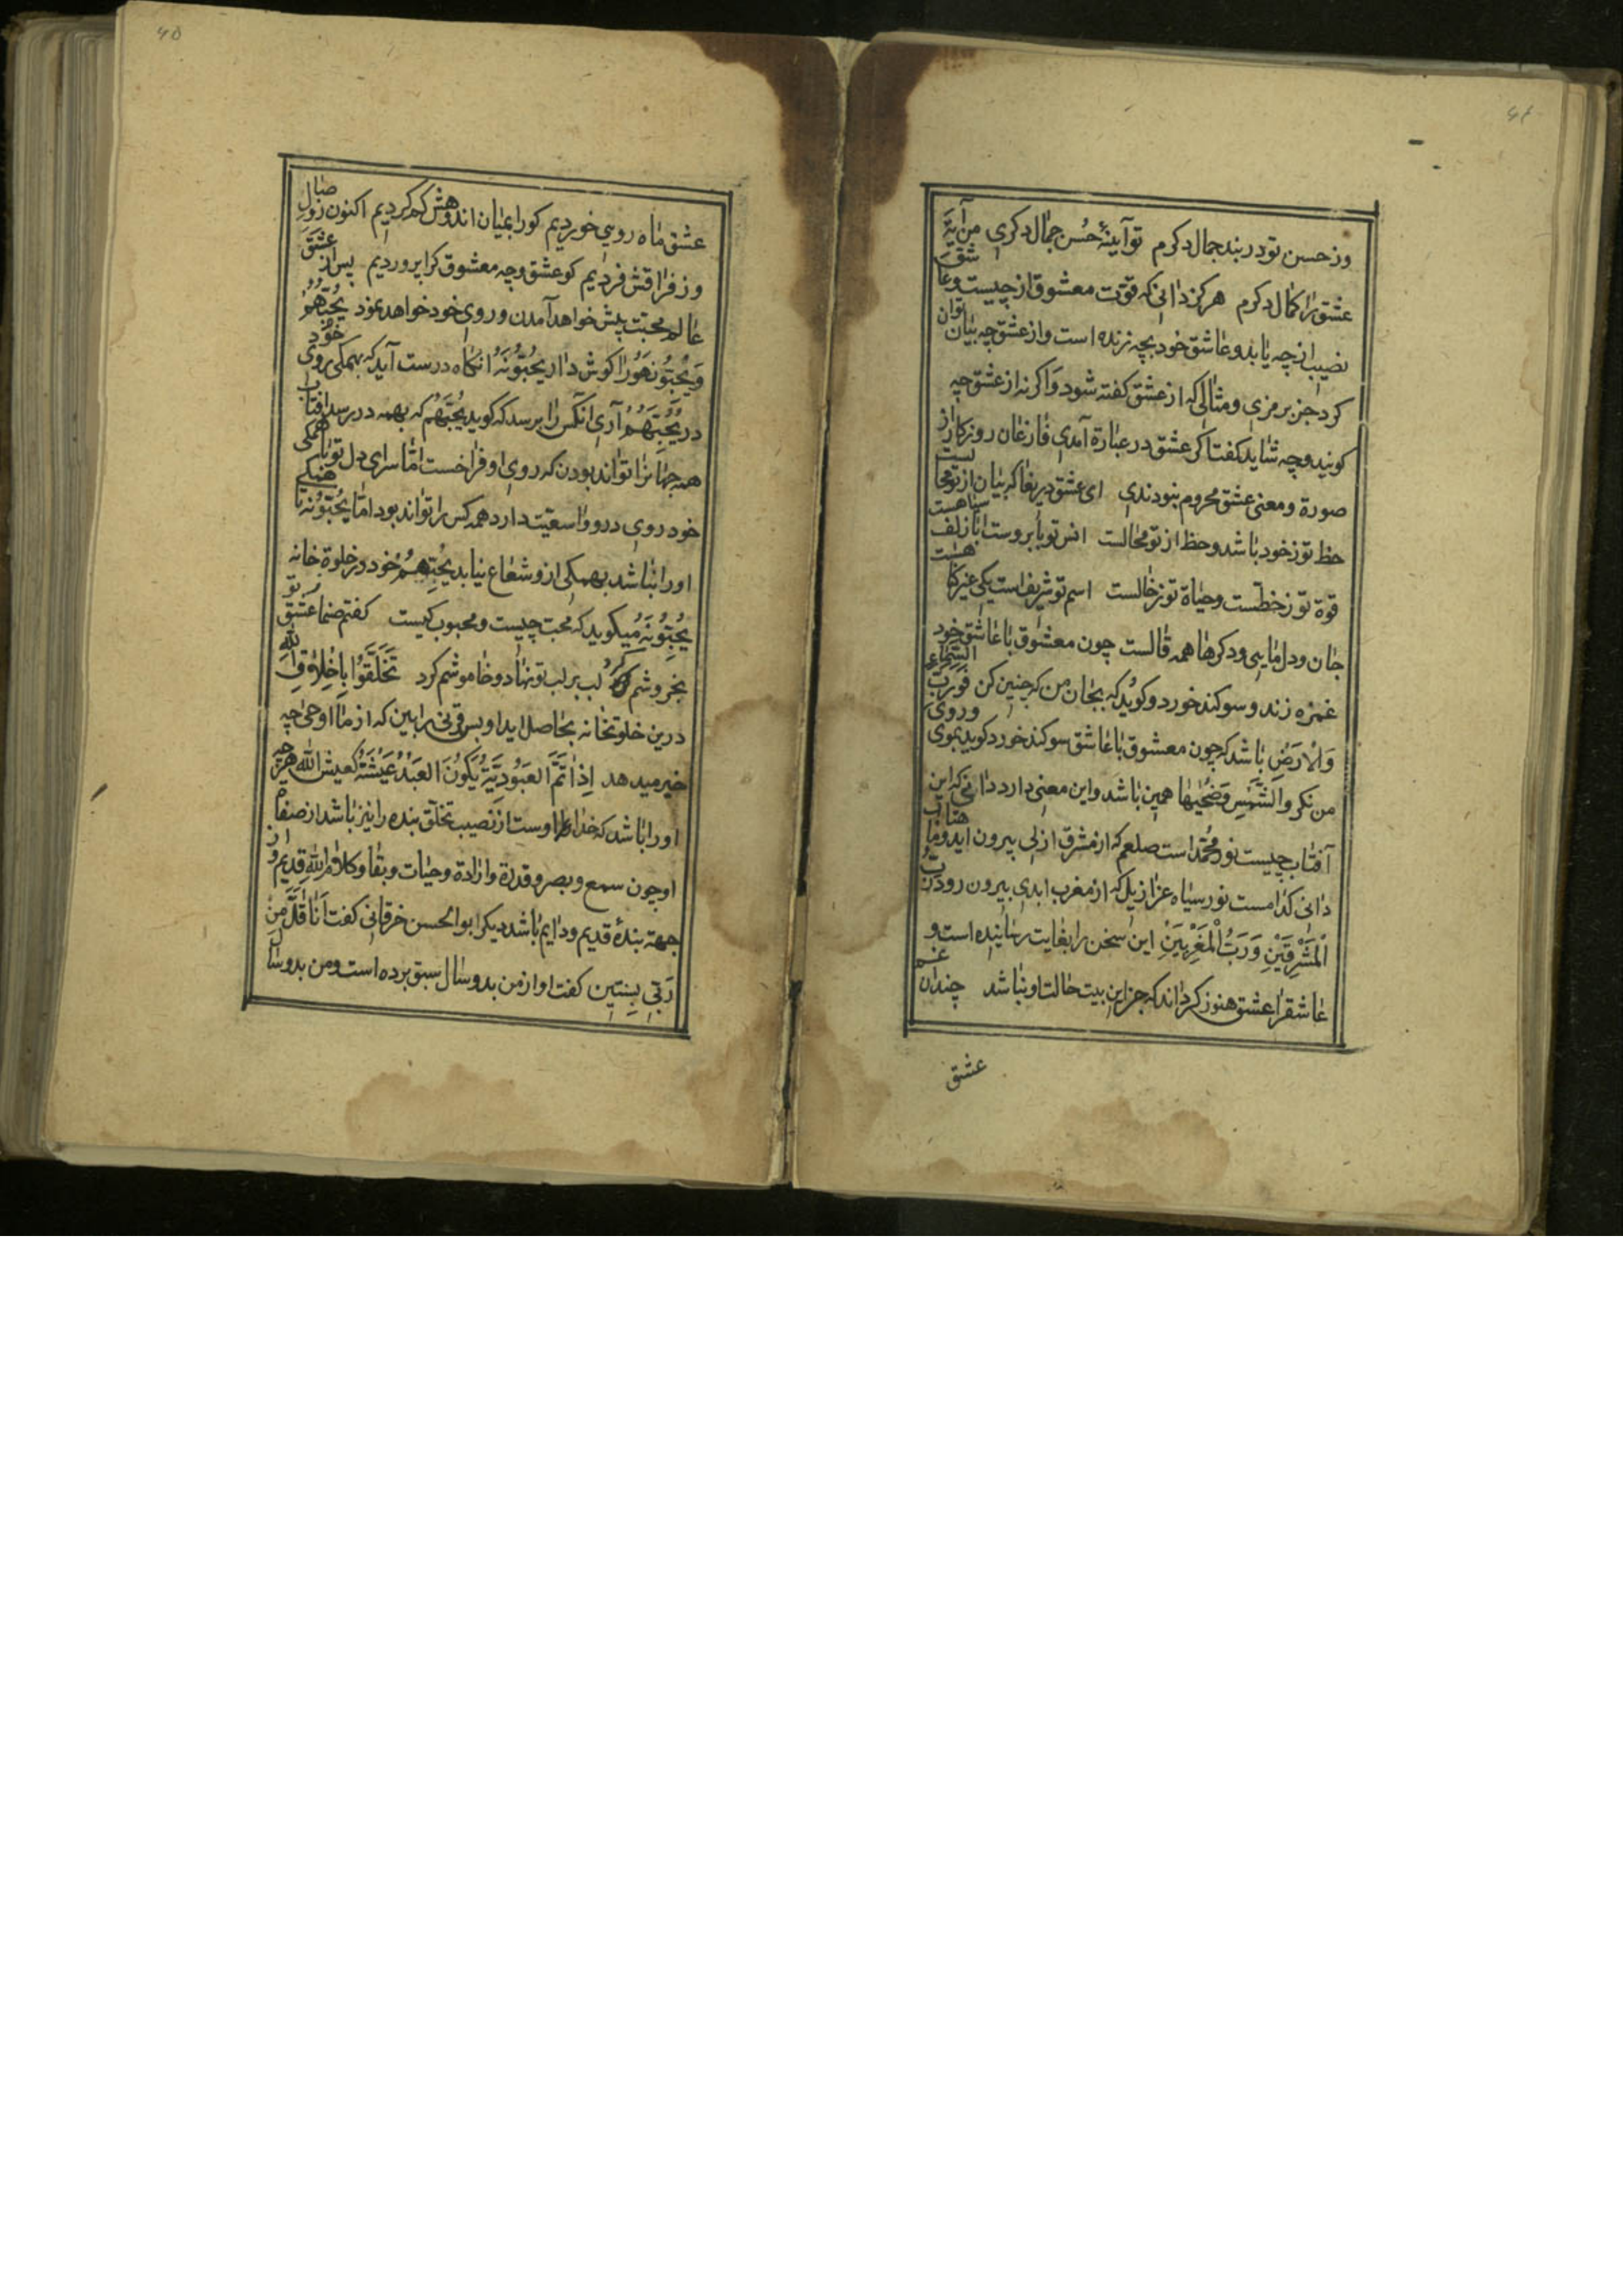 وز حسن تو در بند جمال دکرم تو آینهٔ حُسن جمال دکری من آینهٔ
عشق ترا کمال دکرم هرکز دانی که قوّت معشوق از چیست و عاشق
نصیب از چه یابد و عاشق خود بچه زنده است و از عشق چه بیان توان
کرد جز برمزی و مثالی که از عشق کفته شود و اکرنه از عشق چه
کویند و چه شاید کفت اکر عشق در عبارة آمدی فارغان روزکار از
صورة و معنی عشق محروم نبودندی ای عشق دریغا که بیان از تو محالست
حظ تو ز خود باشد و حظ از تو محالست انس تو بابروست ابا زلف سیاهست
قوة تو ز خطّست و حیاة تو ز خالست اسم تو شریف است یکی غیر کا هست
جان و دل مایی و دکرها همه قالست چون معشوق با عاشق خود
غمزه زند و سوکند خورد و کوید که بجان من که چنین کن فَوَرَبِّ السَّمَاءِ
وَالْاَرْضِ باشد که چون معشوق با عاشق سوکند خورد کوید بموی و روی
من نکر وَالشَّمْسِ وَضُحٰیهَا همین باشد و این معنی دارد دانی که این
آفتاب چیست نور محمّد است صلعم که از مشرق ازلی بیرون اید و ماهتاب
دانی کدامست نور سیاه عزازیل که از مغرب ابدی بیرون رود رَبُّ
الْمَشْرِقَیْنِ وَرَبُّ الْمَغْرِبَیْنِ این سخن را بغایت رسانیده است و
عاشقرا عشق هنوز کرداند که جز این بیت حالت او نباشد چندان غم
عشق
عشق ماه رویی خوردیم کورا بمیان اندوهش کم کردیم اکنون ز وصال
وز فراقش فردیم کو عشق و چه معشوق کرا پروردیم پس از عشق
عالم محبّت پیش خواهد آمدن و روی خود خواهد نمود یُحِبُّهُمْ
وَیُحِبُّونَهُ را کوش دار یُحِبُّونَهُ انکاه درست آید که بهمکی روی خود
در یُحِبُّهُمْ آری انکس را برسد که کوید یُحِبُّهُمْ که بهمه در رسد افتاب
همه جهانرا تواند بودن که روی او فراخست امّا سرای دل تو تا همکی
خود روی درو و اسعّیت دارد همه کس را تواند بود امّا یُحِبُّونَهُ تا همکی
اورا نباشد بهمکی ازو شعاع نیابد یُحِبُّهُمْ خود در خلوة خانه
یُحِبُّونَهُ میکوید که محبّ چیست و محبوب کیست کفتم صنما عشق تو
بخروشم کرد لب بر لب تو نهاد و خاموشم کرد تَخَلَّقُوا بِاَخْلَاقِ اللّٰهِ
درین خلوتخانه بحاصل اید او بس فتی را بین که از ما اوحی چه
خبر میدهد اِذَا تَمَّ الْعَبُودِیَّةُ یَکُونُ الْعَبْدُ عَیْشَتُهُ کَعَیْشِ اللّٰهِ هرچه
اورا باشد که خدا را اوست از نصیب تخلّق بنده را نیز باشد از صفات
او چون سمع و بصر و قدرة و ارادة و حیات و بقا و کلام اللّٰهِ قدیم و از
جهة بندهٔ قدیم و دایم باشد دیکر ابو الحسن خرقانی کفت اَنَا اَقَلُّ مِنْ
رَبِّی بِسَنَتَیْنِ کفت او از من بدو سال سبق برده است و من بدو سال